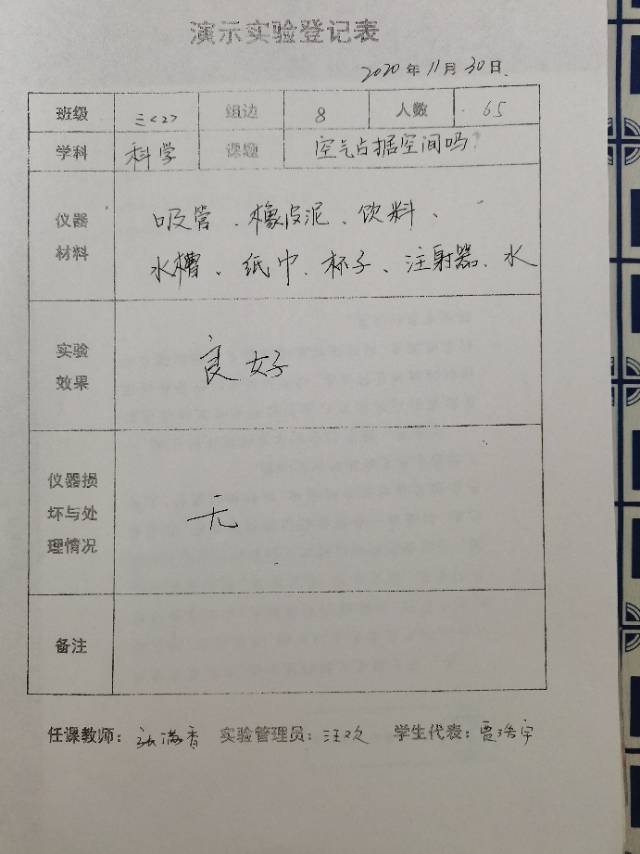 演示实验登记表
2020年11月30日.
班级 三<2> 组边 8 人数 65
学科 科学 课题 空气占据空间吗?
仪器材料 吸管、橡皮泥、饮料、
水槽、纸巾、杯子、注射器、水
实验效果 良好
仪器损坏与处理情况 无
备注
任课教师: 张满香 实验管理员: 汪欢 学生代表: 贾浩宇